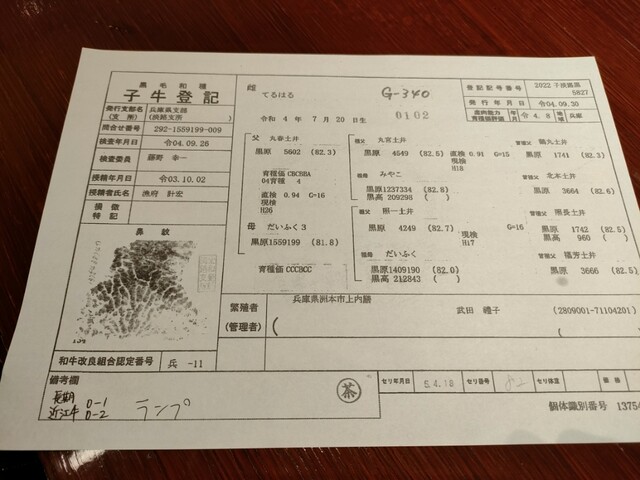 黒毛和種
子牛登記
発行支部名 兵庫県支部
(支所) (淡路支所)
問合せ番号 292-1559199-009
検査年月日 令04.09.26
検査委員 藤野 幸一
授精年月日 令03.10.02
授精者氏名 漁府 計宏
損徴
特記
鼻紋
和牛改良組合認定番号 兵 -11
雌
てるはる
G-340
令和 4 年 7 月 20 日生
0102
登記記号番号 2022 子淡路黒
5827
発行年月日 令04.09.30
産肉能力
育種価評価 年月 令 4.8 地域 兵庫
父 丸春土井
黒原 5602 (82.3)
育種価 CBCBBA
04育種 4
直検 0.94 G=16
現検
H26
母 だいふく3
黒原1559199 (81.8)
育種価 CCCBCC
祖父 丸宮土井
黒原 4549 (82.5)
直検 0.91 G=15
現検
H18
祖母 みやこ
黒原1237334 (82.8)
黒高 209298 ( )
祖父 照一土井
黒原 4249 (82.7)
G=16
現検
H17
祖母 だいふく
黒原1409190 (82.0)
黒高 212843 ( )
曽祖父 鶴丸土井
黒原 1741 (82.3)
曽祖父 北本土井
黒原 3664 (82.6)
曽祖父 照長土井
黒原 1742 (82.5)
黒高 960 ( )
曽祖父 福芳土井
黒原 3666 (82.5)
繁殖者
(管理者)
兵庫県洲本市上内膳
武田 禮子 (2809001-71104201)
備考欄
長期 D-1
近江牛 D-2
ランプ
茶
セリ年月日 5.4.18 セリ番号 82 セリ体重 価格
個体識別番号 1375